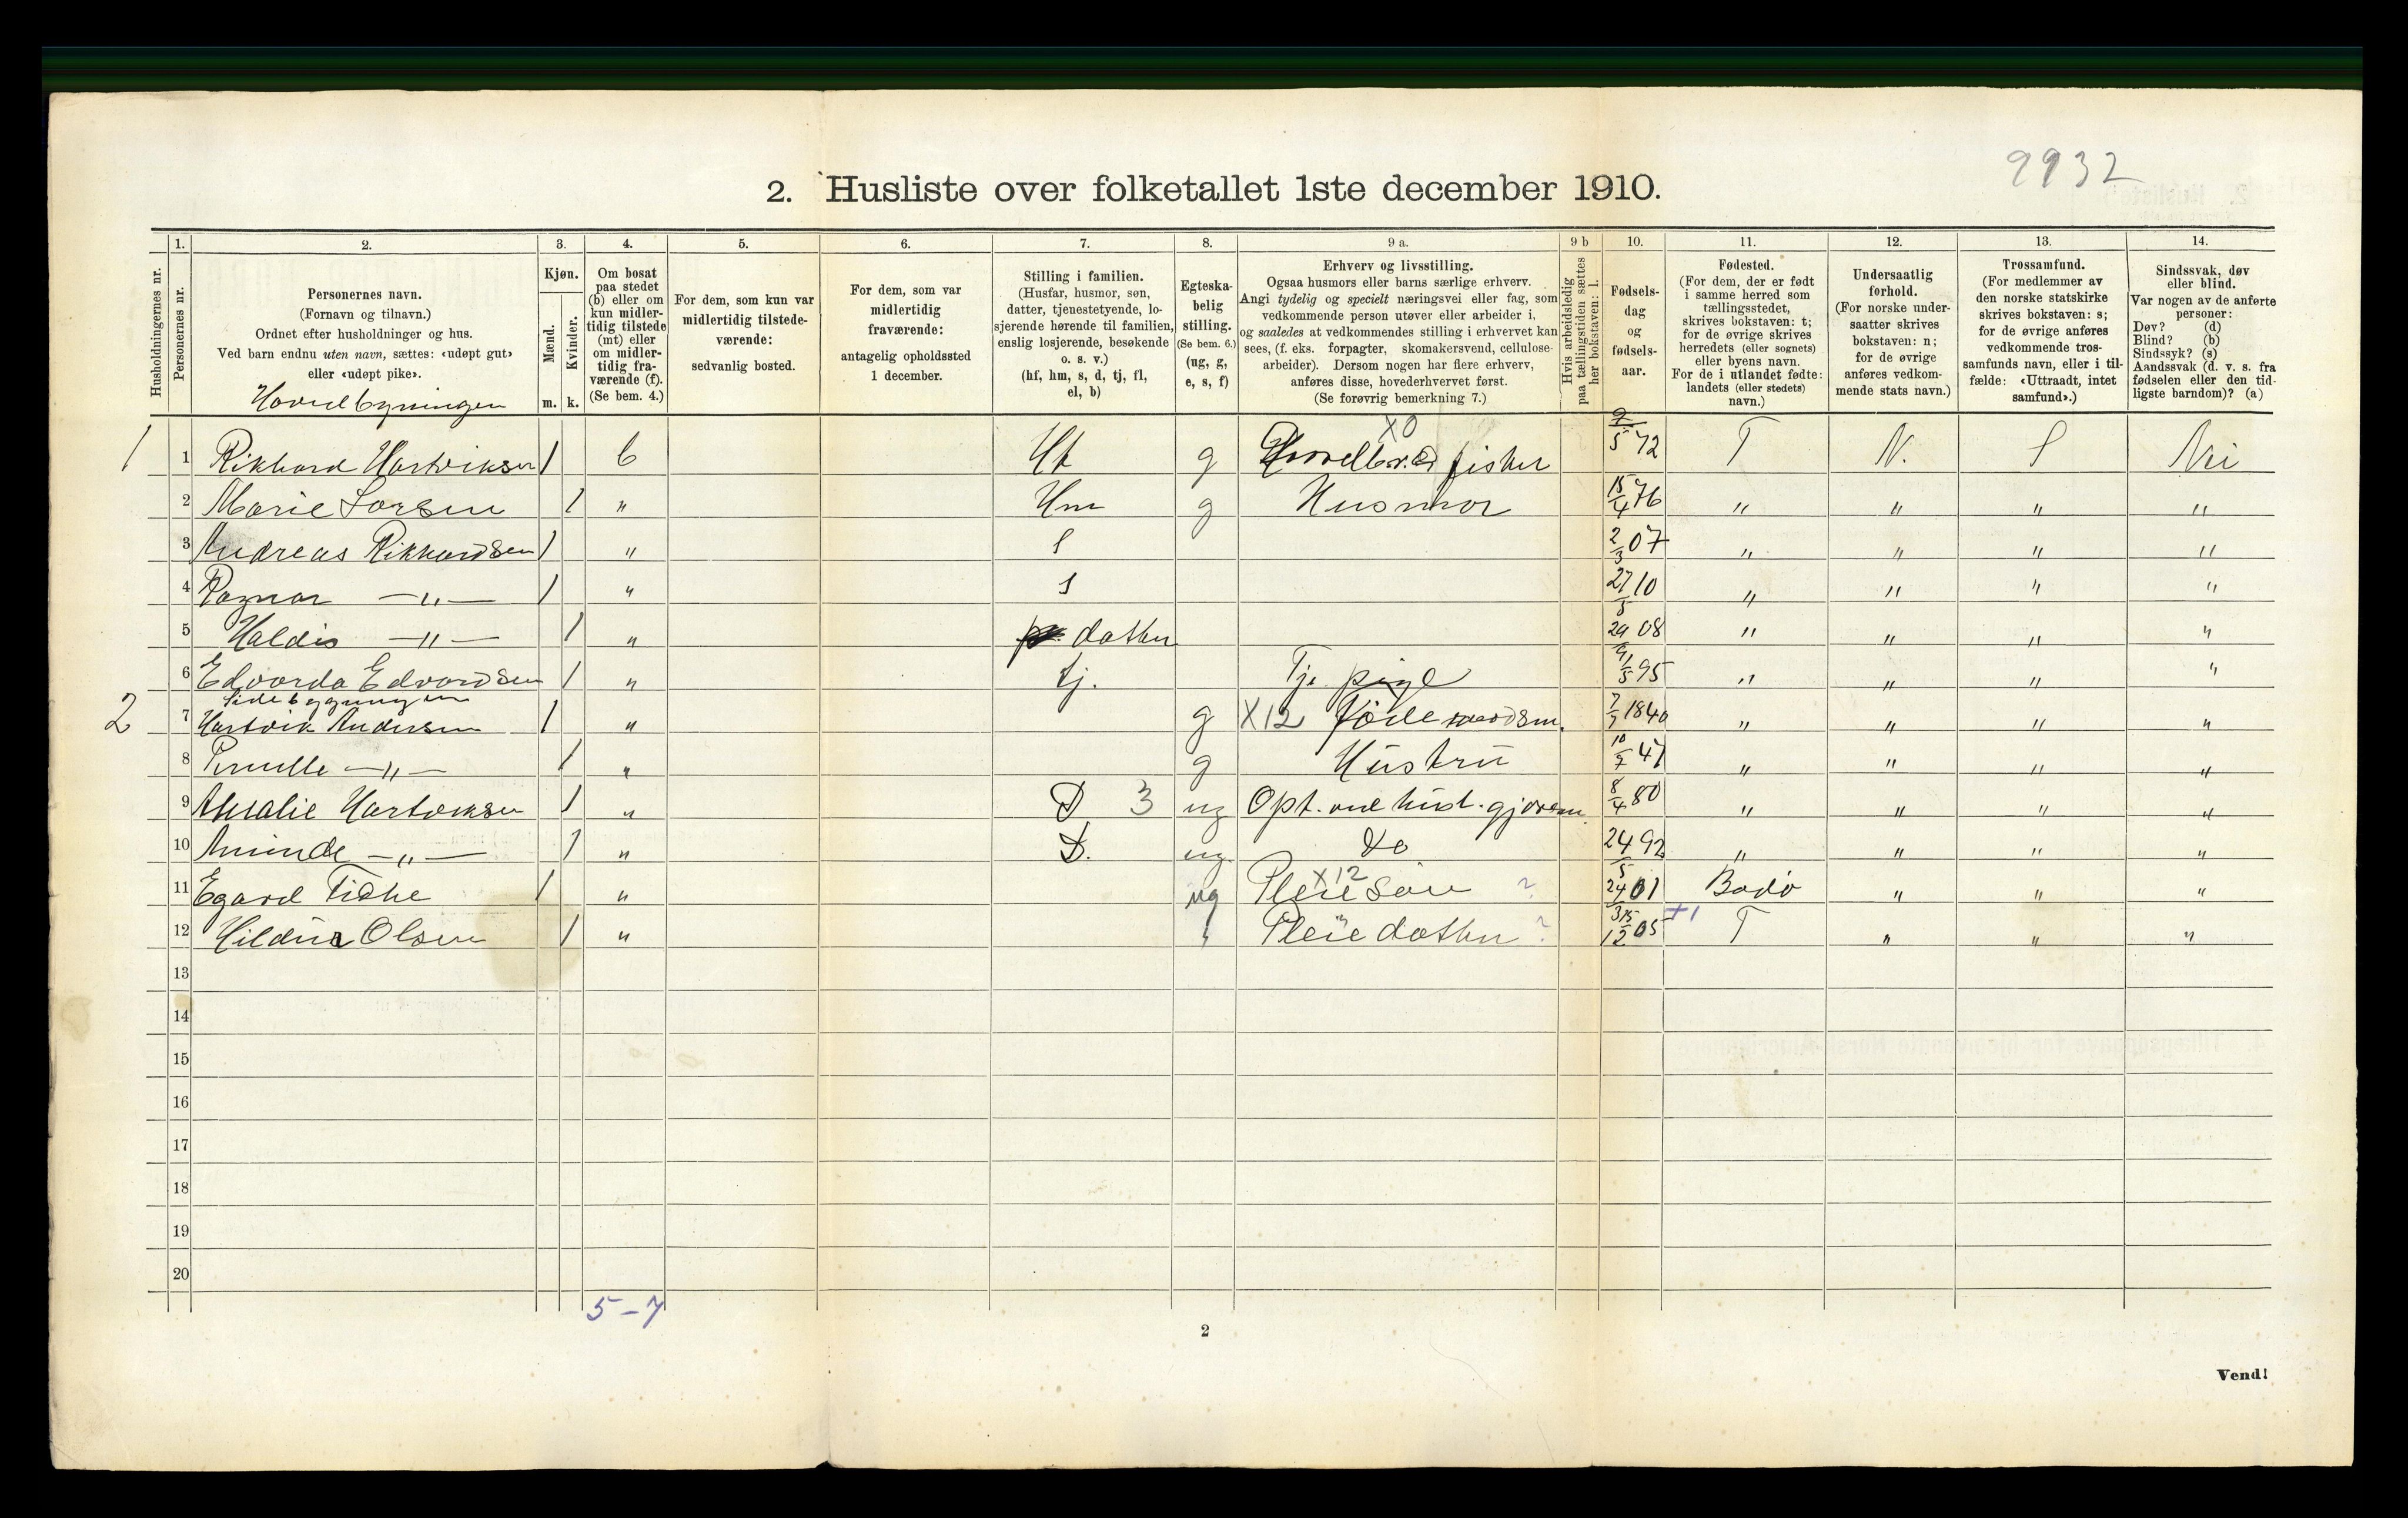 9932
2. Husliste over folketallet 1ste december 1910.
Husholdningernes nr.
1. Personernes nr.
2. Personernes navn.
(Fornavn og tilnavn.)
Ordnet efter husholdninger og hus.
Ved barn endnu uten navn, sættes: «udøpt gut»
eller «udøpt pike».
Hovedbygningen
3. Kjøn.
Mænd. Kvinder.
m. k.
4. Om bosat
paa stedet
(b) eller om
kun midler-
tidig tilstede
(mt) eller
om midler-
tidig fra-
værende (f).
(Se bem. 4.)
5. For dem, som kun var
midlertidig tilstede-
værende:
sedvanlig bosted.
6. For dem, som var
midlertidig
fraværende:
antagelig opholdssted
1 december.
7. Stilling i familien.
(Husfar, husmor, søn,
datter, tjenestetyende, lo-
sjerende hørende til familien,
enslig losjerende, besøkende
o. s. v.)
(hf, hm, s, d, tj, fl,
el, b)
8. Egteska-
belig
stilling.
(Se bem. 6.)
(ug, g,
e, s, f)
9 a. Erhverv og livsstilling.
Ogsaa husmors eller barns særlige erhverv.
Angi tydelig og specielt næringsvei eller fag, som
vedkommende person utøver eller arbeider i,
og saaledes at vedkommendes stilling i erhvervet kan
sees, (f. eks. forpagter, skomakersvend, cellulose-
arbeider). Dersom nogen har flere erhverv,
anføres disse, hovederhvervet først.
(Se forøvrig bemerkning 7.)
9 b Hvis arbeidsledig
paa tællingstiden sættes
her bokstaven: l.
10. Fødsels-
dag
og
fødsels-
aar.
11. Fødested.
(For dem, der er født
i samme herred som
tællingsstedet,
skrives bokstaven: t;
for de øvrige skrives
herredets (eller sognets)
eller byens navn.
For de i utlandet fødte:
landets (eller stedets)
navn.)
12. Undersaatlig
forhold.
(For norske under-
saatter skrives
bokstaven: n;
for de øvrige
anføres vedkom-
mende stats navn.)
13. Trossamfund.
(For medlemmer av
den norske statskirke
skrives bokstaven: s;
for de øvrige anføres
vedkommende tros-
samfunds navn, eller i til-
fælde: «Uttraadt, intet
samfund».)
14. Sindssvak, døv
eller blind.
Var nogen av de anførte
personer:
Døv? (d)
Blind? (b)
Sindssyk? (s)
Aandssvak (d. v. s. fra
fødselen eller den tid-
ligste barndom)? (a)
1 1 Rikhard Hartviksen 1 b Hf g X0 fisker 9/5 72 T N. S Nei
2 Marie Larsen 1 " Hm g Husmor 15/4 76 " " " "
3 Andreas Rikhardsen 1 " S 2/3 07 " " " "
4 Ragnar —"— 1 " S 27/5 10 " " " "
5 Haldis —"— 1 " datter 29/9 08 " " " "
6 Edvarda Edvardsen 1 " tj. Tje pige 1/5 95 " " " "
Sidebygningen
2 7 Hartvik Andersen 1 " g X12 Føderaadsm. 7/7 1840 " " " "
8 Pernille —"— 1 " g Hustru 10/7 47 " " " "
9 Amalie Hartviksen 1 " D 3 ug Opt. ved hust. gjøren. 8/4 80 " " " "
10 Aminde —"— 1 " D. ug do 24/5 92 " " " "
11 Egard 1 " ug X12 Pleie søn ? 24/3 01 Bodø " " "
12 Olsen 1 " " Pleie datter ? 15/12 05 +1 T " " "
13
14
15
16
17
18
19
20
5-7
2
Vend!